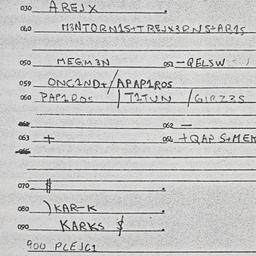 030 AREJX
040 M3NTORN1S+TREJX3RNS+AR1S
050 MEGM3N 051 -QELSW
059 ONC1ND+/APAP1ROS
060 PAP1ROS /T1TUN /G1RZ3S
062 -
063 + 064 +QAP S+MEM
070 $
080 )KAR-K
090 KARKS $
900 PLEJC1